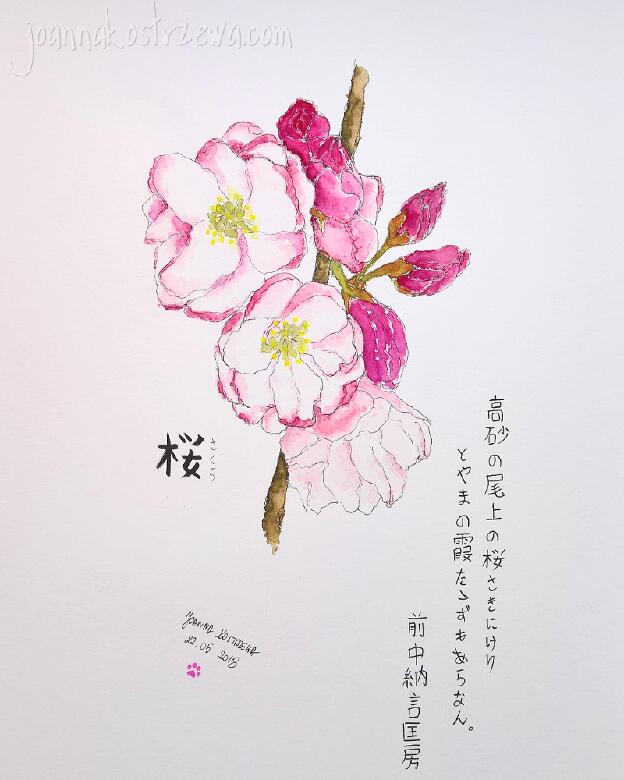 joannakostrzewa.com
高砂の尾上の桜さきにけり
とやまの霞たゝずもあらなん。
前中納言匡房
桜
さくら
Joanna Kostrzewa
22.05 2018